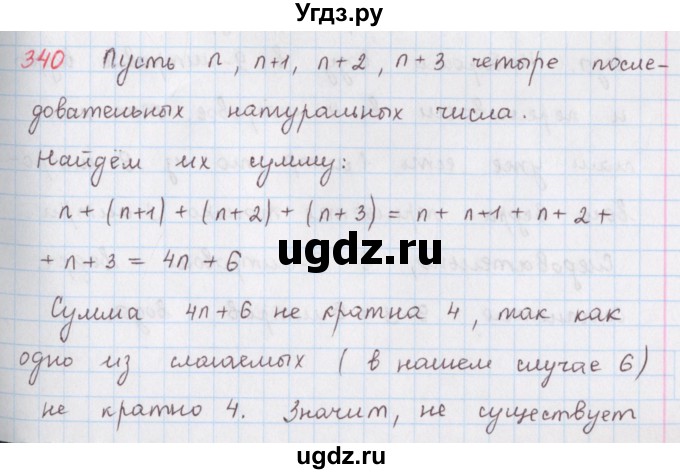 Угдз.ру
340 Пусть n, n+1, n+2, n+3 четыре после-
довательных натуральных числа.
Найдём их сумму:
n + (n+1) + (n+2) + (n+3) = n + n+1 + n+2 +
+ n+3 = 4n + 6
Сумма 4n+6 не кратна 4, так как
одно из слагаемых (в нашем случае 6)
не кратно 4. Значит, не существует
ugdz.ru
ugdz.ru